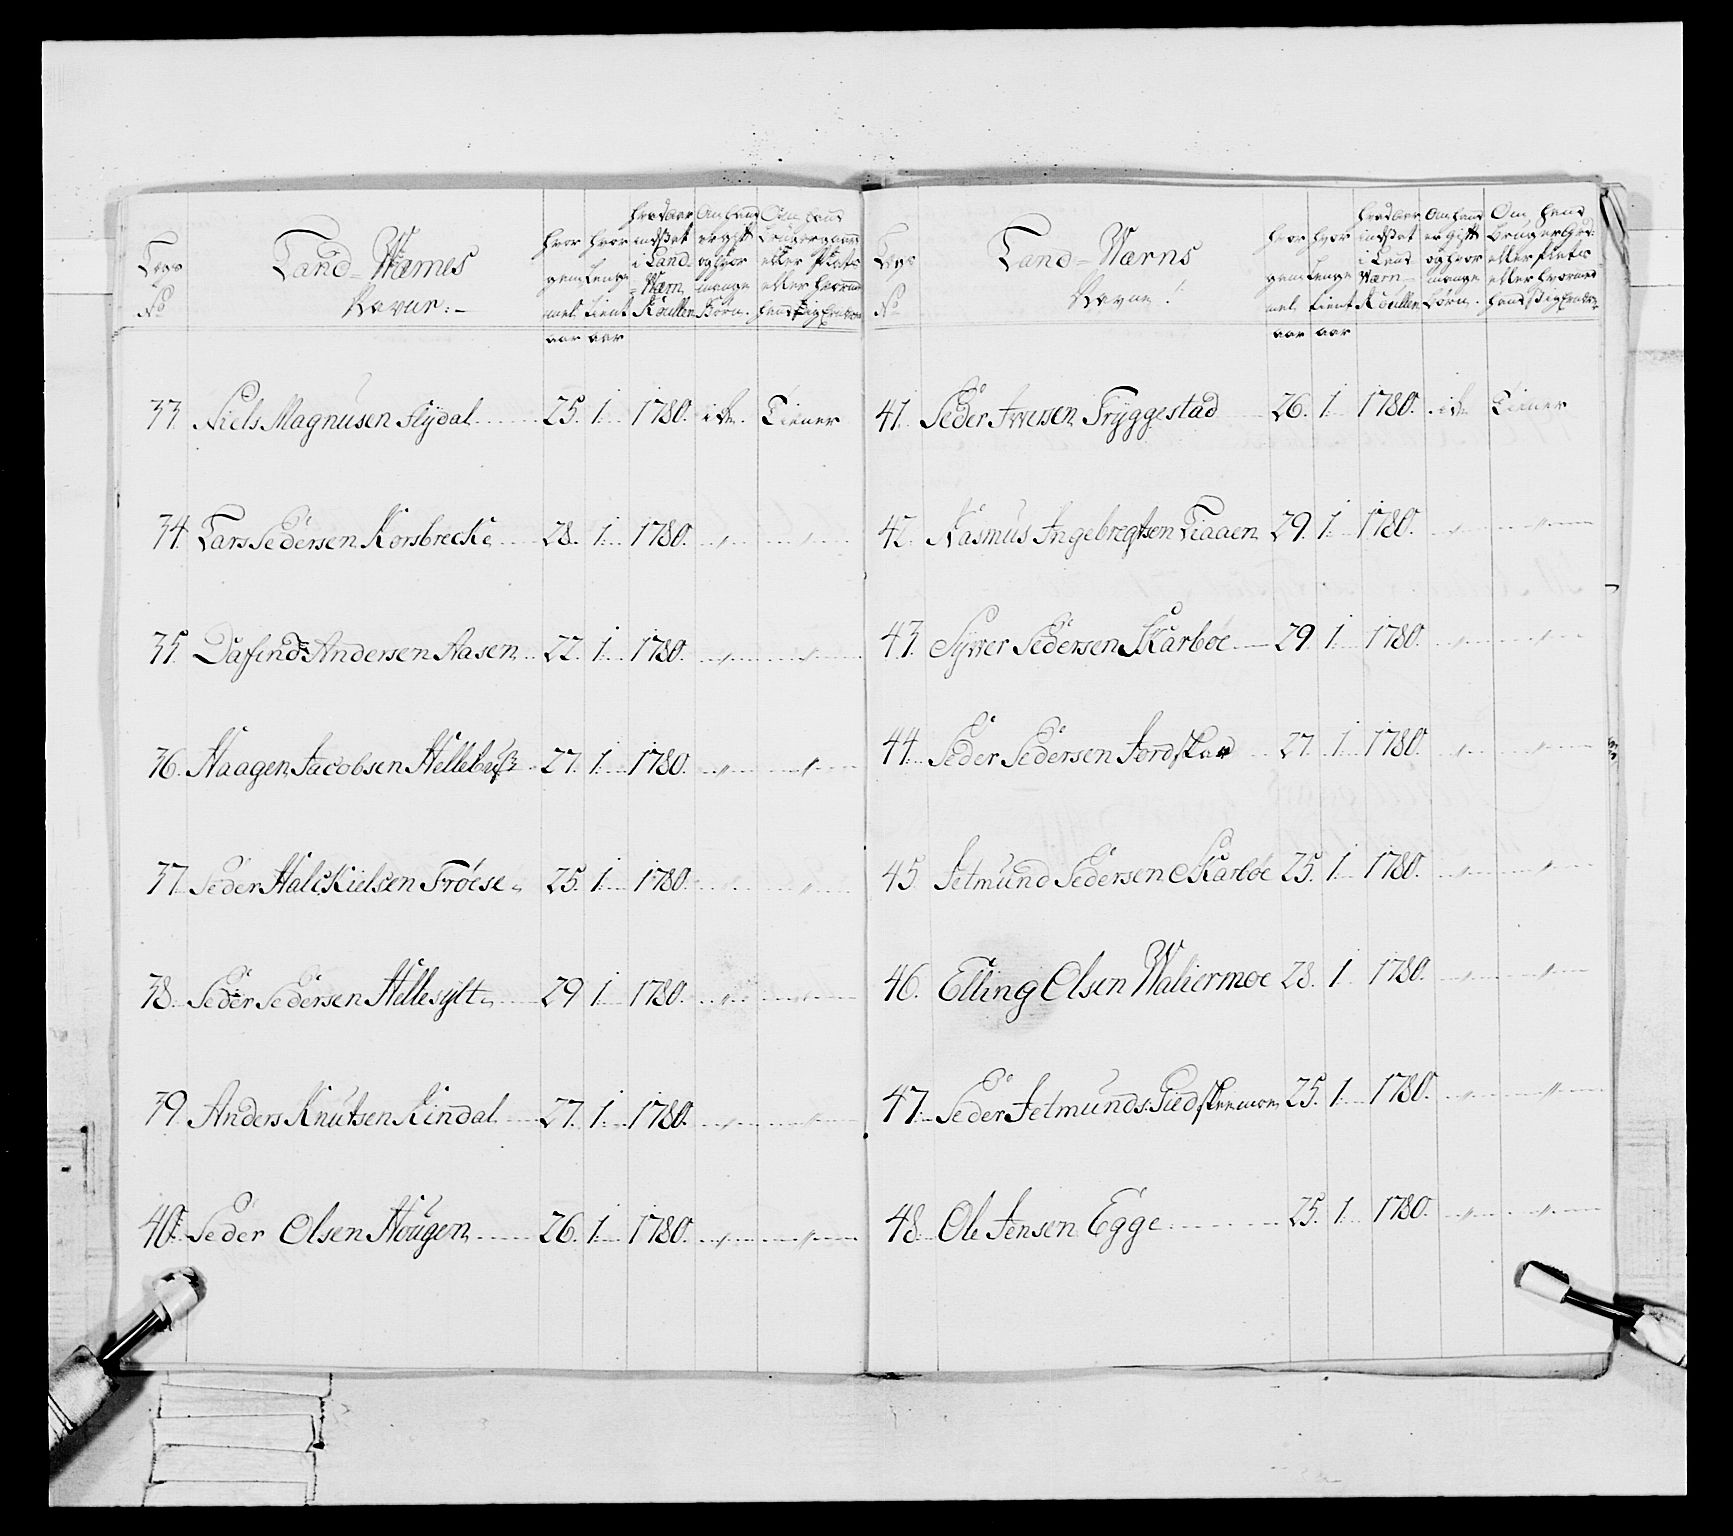 Legs No
Land-Wærnes
Navne:
hvor gammel
aar
hvor Lenge tient
aar
hvad aar indsat i Land-Wærn Roullen
Om hand er gift og hvor mange Børn.
Om hand eller Plads eller hvormed hand sig
33. Niels Magnusen Flÿdal 25. 1. 1780. ik. Tiener
34. Lars Pedersen Korsbrecke 28. 1. 1780. " "
35. Dafind Andersen Aasen 22. 1. 1780. " "
36. Haagen Jacobsen Hellebust 27. 1. 1780. " "
37. Peder Halckielsen Frøese 25. 1. 1780. " "
38. Peder Pedersen Hellesylt 29 1. 1780. " "
39. Anders Knutsen Kindal 27. 1. 1780. " "
40. Peder Olsen Hougen 26. 1. 1780. " "
Legs No
Land-Wærns
Navne:
hvor gammel
aar
hvor lenge tient
aar
hvad aar indsat i Land Wærn Roullen
Om hand er gift og hvor mange børn.
Om hand bruger eller plads eller hvormed hand sig
41. Peder Iversen Trÿggestad 26. 1. 1780. ik Tiener
42. Rasmus Ingebregtsen Tiaaen 29. 1. 1780. " "
43. Sÿver Pedersen Skarbøe 29. 1. 1780. " "
44. Peder Pedersen Jordskar 27. 1. 1780. " "
45. Jetmund Pedersen Skarbøe 25. 1. 1780. " "
46. Elling Olsen Waliermoe 28. 1. 1780. " "
47. Peder Jetmunds: 25. 1. 1780. " "
48. Ole Jensen Egge 25. 1. 1780. " "